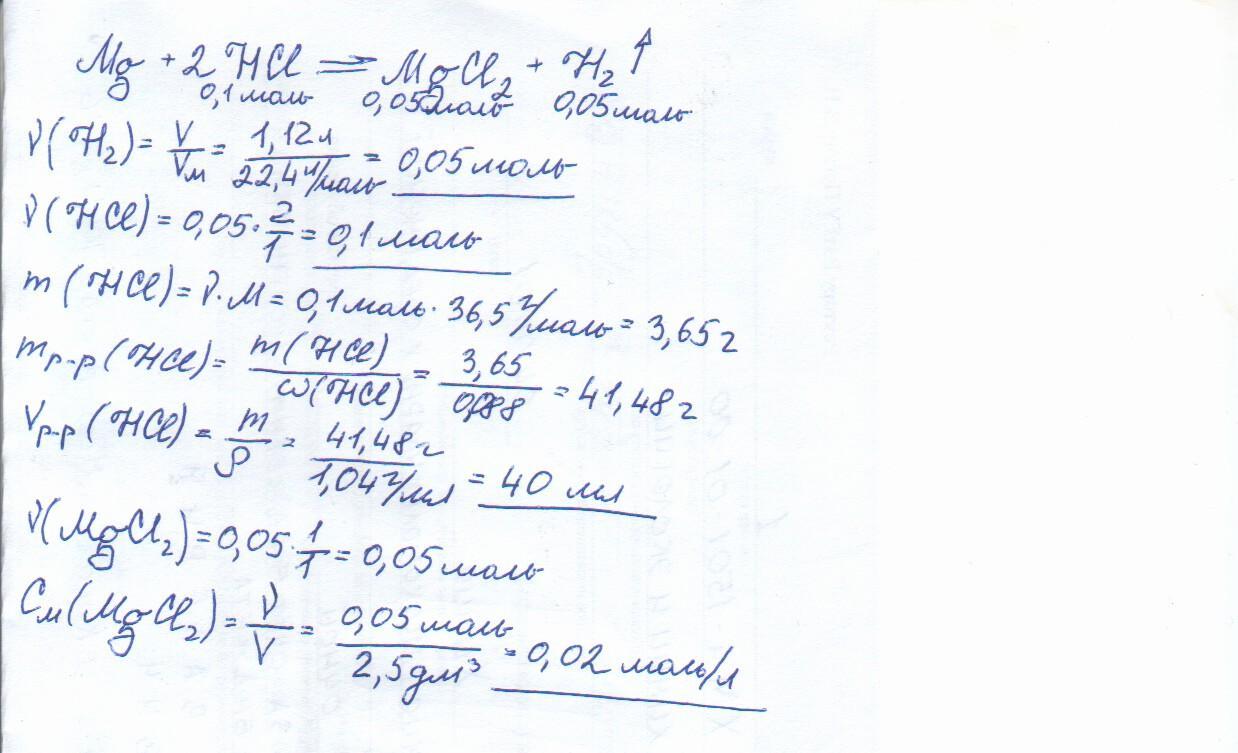 Mg + 2HCl = MgCl₂ + H₂↑
0,1 моль 0,05 моль 0,05 моль
ν(H₂) = V/Vм = 1,12 л/22,4 л/моль = 0,05 моль
ν(HCl) = 0,05 · 2/1 = 0,1 моль
m (HCl) = ν · M = 0,1 моль · 36,5 г/моль = 3,65 г
mр-р (HCl) = m(HCl)/ω(HCl) = 3,65/0,088 = 41,48 г
Vр-р (HCl) = m/ρ = 41,48 г/1,04 г/мл = 40 мл
ν(MgCl₂) = 0,05 · 1/1 = 0,05 моль
Cм(MgCl₂) = ν/V = 0,05 моль/2,5 дм³ = 0,02 моль/л